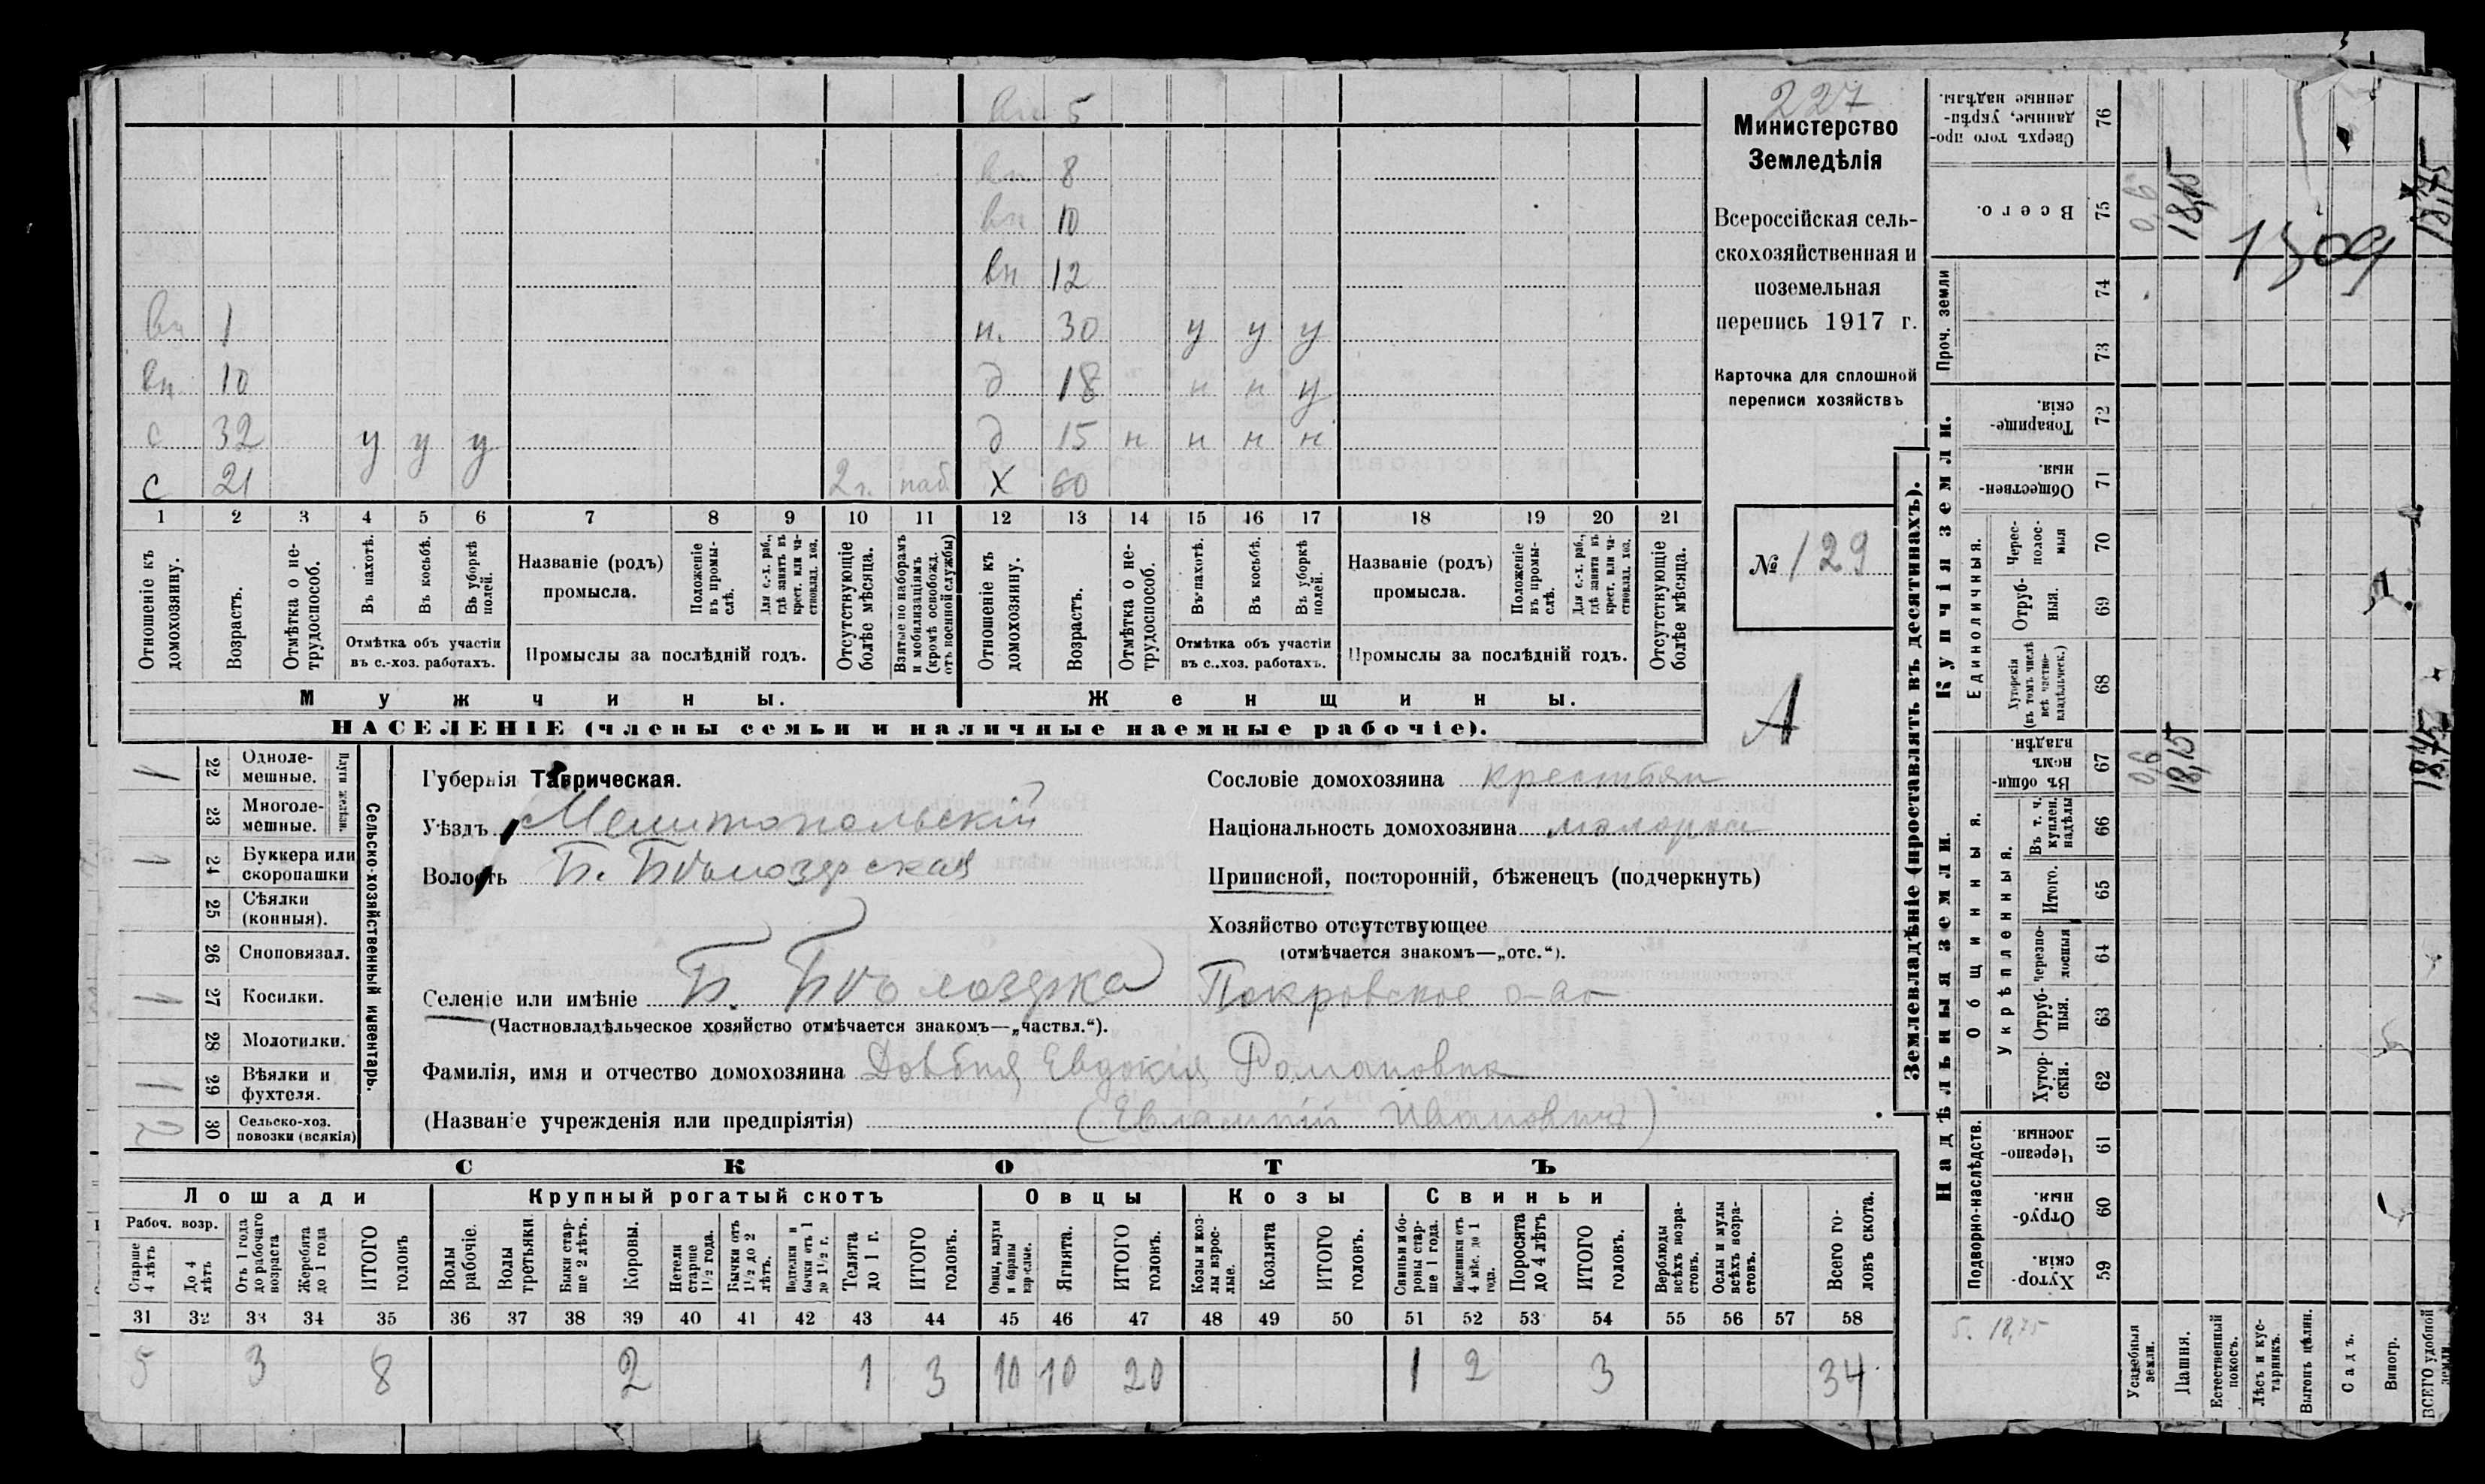 227
Министерство
Земледѣлія
Всероссійская сель-
скохозяйственная и
поземельная
перепись 1917 г.
Карточка для сплошной
переписи хозяйствъ
№ 129
А
вп 5
вп 8
вп 10
вп 12
вп 1 н. 30 у у у
вп 10 д 18 н н у
с 32 у у у д 15 н н н н
с 21 2 г. наб. Х 60
1 2 3 4 5 6 7 8 9 10 11 12 13 14 15 16 17 18 19 20 21
Отношеніе къ домохозяину.
Возрастъ.
Отмѣтка о не-трудоспособ.
Въ пахотѣ.
Въ косьбѣ.
Въ уборкѣ полей.
Отмѣтка объ участіи
въ с.-хоз. работахъ.
Названіе (родъ)
промысла.
Положеніе въ промы-слѣ.
Для с.-х. раб., гдѣ занятъ въ крест. или ча-ствовлад. хоз.
Промыслы за послѣдній годъ.
Отсутствующіе болѣе мѣсяца.
Взятые по наборамъ и мобилизаціямъ (кромѣ освобожд. отъ военной службы)
Отношеніе къ домохозяину.
Возрастъ.
Отмѣтка о не-трудоспособ.
Въ пахотѣ.
Въ косьбѣ.
Въ уборкѣ полей.
Отмѣтка объ участіи
въ с.-хоз. работахъ.
Названіе (родъ)
промысла.
Положеніе въ промы-слѣ.
Для с.-х. раб., гдѣ занята въ крест. или ча-ствовлад. хоз.
Промыслы за послѣдній годъ.
Отсутствующіе болѣе мѣсяца.
Мужчины. Женщины.
НАСЕЛЕНІЕ (члены семьи и наличные наемные рабочіе).
Сельско-хозяйственный инвентарь.
Плуги желѣзн.
1 22 Одноле-мешные.
23 Многоле-мешные.
1 24 Буккера или скоропашки
25 Сѣялки (конныя).
26 Сноповязал.
1 27 Косилки.
28 Молотилки.
1 29 Вѣялки и фухтеля.
2 30 Сельско-хоз. повозки (всякія)
Губернія Таврическая.
Уѣздъ Мелитопольскій
Волость Б. Бѣлозерская
Селеніе или имѣніе Б. Бѣлозерка Покровское о-во
(Частновладѣльческое хозяйство отмѣчается знакомъ—„частвл.“).
Фамилія, имя и отчество домохозяина Довбня Евдокія Романовна
(Названіе учрежденія или предпріятія) (Евлампій Ивановичъ)
Сословіе домохозяина крестьян
Національность домохозяина малорос
Приписной, посторонній, бѣженецъ (подчеркнуть)
Хозяйство отсутствующее
(отмѣчается знакомъ—„отс.“).
СКОТЪ
Лошади Крупный рогатый скотъ Овцы Козы Свиньи
Рабоч. возр.
Старше 4 лѣтъ
До 4 лѣтъ
Отъ 1 года до рабочаго возраста
Жеребята до 1 года
ИТОГО головъ
Волы рабочіе.
Волы третьяки.
Быки стар-ше 2 лѣтъ.
Коровы.
Нетели старше 1½ года.
Бычки отъ 1½ до 2 лѣтъ.
Подтелки и бычки отъ 1 до 1½ г.
Телята до 1 г.
ИТОГО головъ.
Овцы, валухи и бараны взрослые.
Ягнята.
ИТОГО головъ.
Козы и коз-лы взрос-лые.
Козлята
ИТОГО головъ.
Свиньи и бо-ровы стар-ше 1 года.
Подсвинки отъ 4 мѣс. до 1 года.
Поросята до 4 лѣтъ
ИТОГО головъ.
Верблюды всѣхъ возра-стовъ.
Ослы и мулы всѣхъ возра-стовъ.
Всего го-ловъ скота.
31 32 33 34 35 36 37 38 39 40 41 42 43 44 45 46 47 48 49 50 51 52 53 54 55 56 57 58
5 3 8 2 1 3 10 10 20 1 2 3 34
Землевладѣніе (проставлять въ десятинахъ).
Надѣльныя земли. Купчія земли. Проч. земли
Подворно-наслѣдств.
Общинныя.
Укрѣпленныя.
Единоличныя.
59 Хутор-скія.
60 Отруб-ныя.
61 Черезпо-лосныя.
62 Хутор-скія.
63 Отруб-ныя.
64 Черезпо-лосныя
65 Итого.
66 Въ т. ч. куплен. надѣлы
67 Въ общи-номъ владѣн.
68 Хуторскія (въ томъ числѣ всѣ частно-владѣльческ.)
69 Отруб-ныя.
70 Черес-полос-ныя
71 Обществен-ныя.
72 Товарище-скія.
73
74
75 Всего.
76 Сверхъ того про-данные, укрѣп-ленные надѣлы.
5. 18,75
Усадебныя земли. 0,6 0,6
Пашня. 18,15 18,15
Естественный покосъ.
Лѣсъ и кус-тарникъ.
Выгонъ цѣлин.
Садъ.
Виногр.
ВСЕГО удобной земли. 18,75 18,75
1509